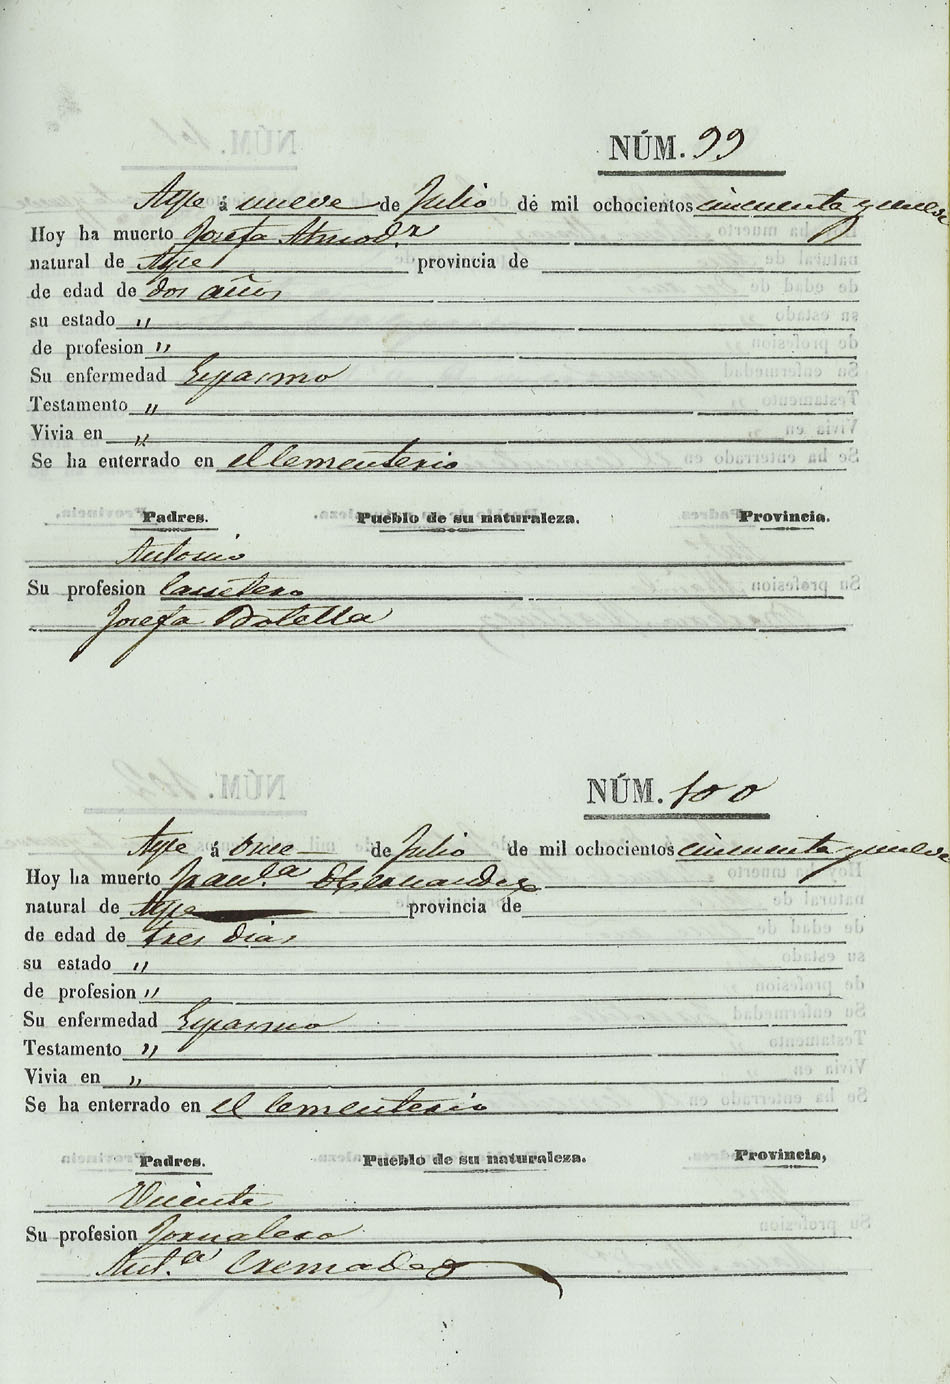 NÚM. 99
Aspe á nueve de Julio de mil ochocientos cincuenta y nueve
Hoy ha muerto Josefa Almod.r
natural de Aspe provincia de
de edad de dos años
su estado "
de profesion "
Su enfermedad Espasmo
Testamento "
Vivia en "
Se ha enterrado en el Cementerio
Padres. Pueblo de su naturaleza. Provincia.
Antonio
Su profesion Carretero
Josefa Botella
NÚM. 100
Aspe á once de Julio de mil ochocientos cincuenta y nueve
Hoy ha muerto Fran.ca Hernandez
natural de Aspe provincia de
de edad de tres dias
su estado "
de profesion "
Su enfermedad Espasmo
Testamento "
Vivia en "
Se ha enterrado en el Cementerio
Padres. Pueblo de su naturaleza. Provincia,
Vicente
Su profesion Jornalero
Ant.a Cremades